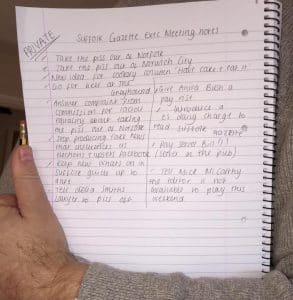 PRIVATE
Suffolk Gazette Exec Meeting notes
- Take the piss out of Norfolk
- Take the piss out of Norwich City
- New idea for cookery column 'Have cake + eat it'
- Go for beer at the
Greyhound
- Answer complaint from
commission for racial
equality about taking
the piss out of Norfolk
- Stop producing fake news
that influences US
elections + upsets Facebook
- Keep New whats on in
Suffolk guide up to
date
- Tell Delia Smiths
lawyer to piss off
- Give Bush a
pay rise
- Introduce a
£5 daily charge to
read Suffolk
Gazette
- Pay server Bill!!!
(server in the pub)
- Tell Mick McCarthy
the editor is not
available to play this
weekend